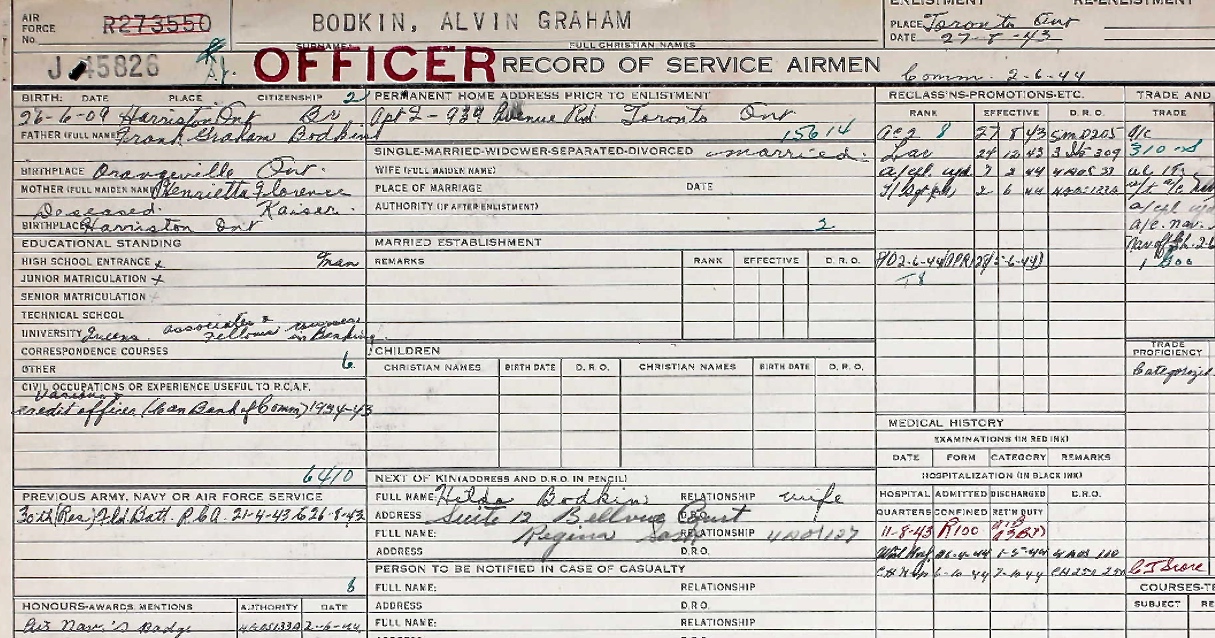 AIR FORCE No. R273550 BODKIN, ALVIN GRAHAM
SURNAME FULL CHRISTIAN NAMES
ENLISTMENT RE-ENLISTMENT
PLACE Toronto Ont
DATE 27-8-43
J 45826 OFFICER RECORD OF SERVICE AIRMEN Comm. 2-6-44
BIRTH: DATE PLACE CITIZENSHIP 2
26-6-09 Harriston Ont Br
FATHER (FULL NAME) Frank Graham Bodkin
BIRTHPLACE Orangeville Ont.
MOTHER (FULL MAIDEN NAME) Henrietta Florence
Deseased. Kaiser.
BIRTHPLACE Harriston Ont
EDUCATIONAL STANDING
HIGH SCHOOL ENTRANCE x
JUNIOR MATRICULATION x
SENIOR MATRICULATION
TECHNICAL SCHOOL
UNIVERSITY Queens associates & Fellows in Banking
CORRESPONDENCE COURSES
OTHER 6
CIVIL OCCUPATIONS OR EXPERIENCE USEFUL TO R.C.A.F.
Various &
credit officer (Can Bank of Comm) 1934-43
6410
PREVIOUS ARMY, NAVY OR AIR FORCE SERVICE
30th (Res) Fld Batt. R.C.A. 21-4-43 to 26-8-43
6
HONOURS-AWARDS, MENTIONS AUTHORITY DATE
Air Nav's Badge 2-6-44
PERMANENT HOME ADDRESS PRIOR TO ENLISTMENT
Apt 2 - 939 Avenue Rd. Toronto Ont
15614
SINGLE-MARRIED-WIDOWER-SEPARATED-DIVORCED married.
WIFE (FULL MAIDEN NAME)
PLACE OF MARRIAGE DATE
AUTHORITY (IF AFTER ENLISTMENT)
2
MARRIED ESTABLISHMENT
REMARKS RANK EFFECTIVE D.R.O.
CHILDREN
CHRISTIAN NAMES BIRTH DATE D.R.O. CHRISTIAN NAMES BIRTH DATE D.R.O.
NEXT OF KIN (ADDRESS AND D.R.O. IN PENCIL)
FULL NAME: Hilda Bodkin RELATIONSHIP wife
ADDRESS Suite 12 Bellvue Court D.R.O.
FULL NAME: Regina Sask RELATIONSHIP
ADDRESS D.R.O.
PERSON TO BE NOTIFIED IN CASE OF CASUALTY
FULL NAME: RELATIONSHIP
ADDRESS D.R.O.
FULL NAME: RELATIONSHIP
ADDRESS D.R.O.
RECLASS'NS-PROMOTIONS-ETC.
RANK EFFECTIVE D.R.O.
ac2 8 27 8 43
Lac 24 12 43
2 6 44
MEDICAL HISTORY
EXAMINATIONS (IN RED INK)
DATE FORM CATEGORY REMARKS
HOSPITALIZATION (IN BLACK INK)
HOSPITAL ADMITTED DISCHARGED D.R.O.
QUARTERS CONFINED RET'N DUTY
11-8-43 R100
1-5-44
6-10-44 7-10-44
TRADE AND
TRADE
a/c
TRADE PROFICIENCY
Categorized
COURSES-TE
SUBJECT RE